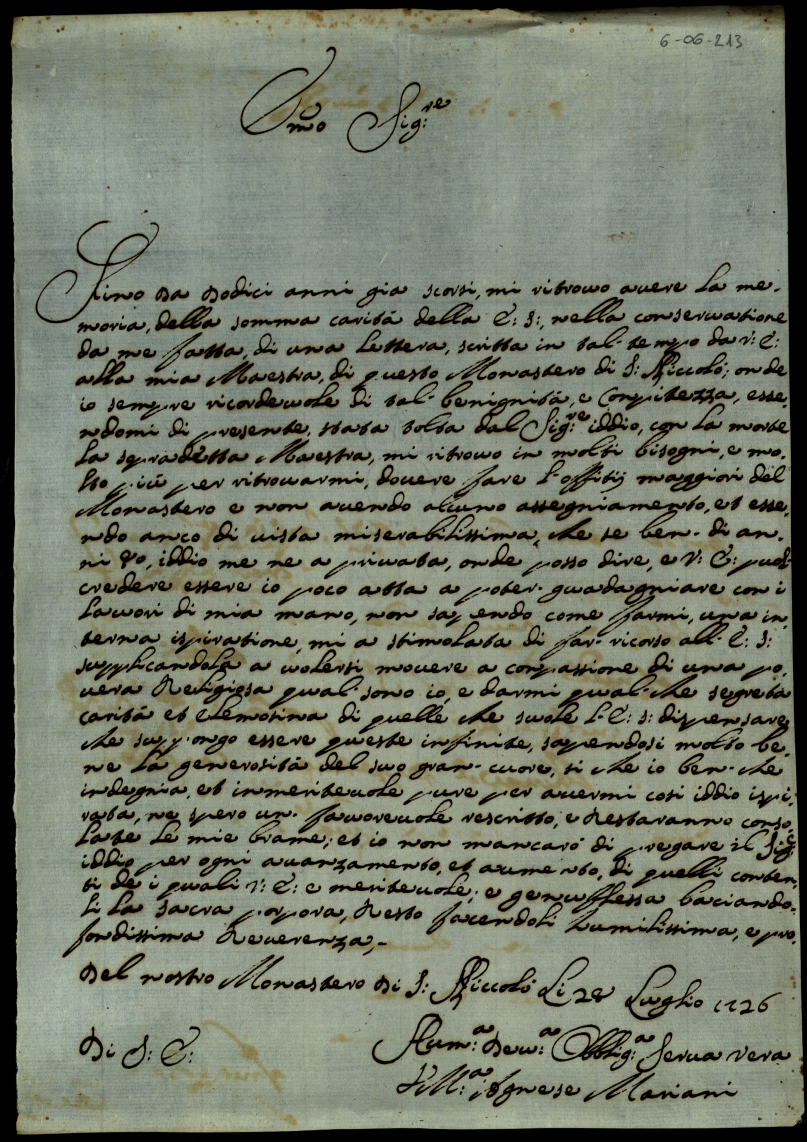 6-06-213
E.mo Sig:re
Sino da dodici anni gia scorsi, mi ritrovo avere la me-
moria, della somma carità della E: S:, nella conservatione
da me fatta, di una lettera, scritta in tal- tempo da V: E:
alla mia Maestra, di questo Monastero di S: Niccolò; onde
io sempre ricordevole di tal- benignità, e Compitezza, esse-
ndomi di presente, stata tolta dal Sig:re iddio, con la morte
la sopradetta Maestra, mi ritrovo in molti bisogni, e mo-
lto più per ritrovarmi, dovere fare l'offitij maggiori del
Monastero e non avendo alcuno assegniamento, et esse-
ndo anco di vista miserabilissima, che se ben- di an-
ni 40, iddio me ne a privata, onde posso dire, e V: E: può
credere essere io poco atta a poter- guadagniare con i
lavori di mia mano, non sapendo come farmi, una in-
terna ispiratione, mi a stimolata di far- ricorso all- E: S:
supplicandola a volersi movere a conpassione di una po-
vera Religiosa qual- sono io, e darmi qual- che segreta
carità et elemosina di quelle che suole l- E: S: dispensare,
che suppongo essere queste infinite, sapendosi molto be-
ne la generosità del suo gran- cuore, si che io ben- che
indegnia, et inmeritevole pure per avermi così iddio ispi-
rata, ne spero un- favorevole rescritto, e Restaranno conso-
late le mie brame; et io non mancarò di pregare il Sig:e
iddio per ogni avanzamento, et aumento, di quelli conten-
ti de i quali V: E: e meritevole; e genuflessa baciando-
li la sacra porpora, Resto facendoli humilissima, e pro-
fondissima Reverenza,-
Del nostro Monastero di S: Niccolò Li 28 Luglio 1726
Di S: E:
Hum:a Dev:a Obblig:a Serva vera
S: M:a Agnese Mariani